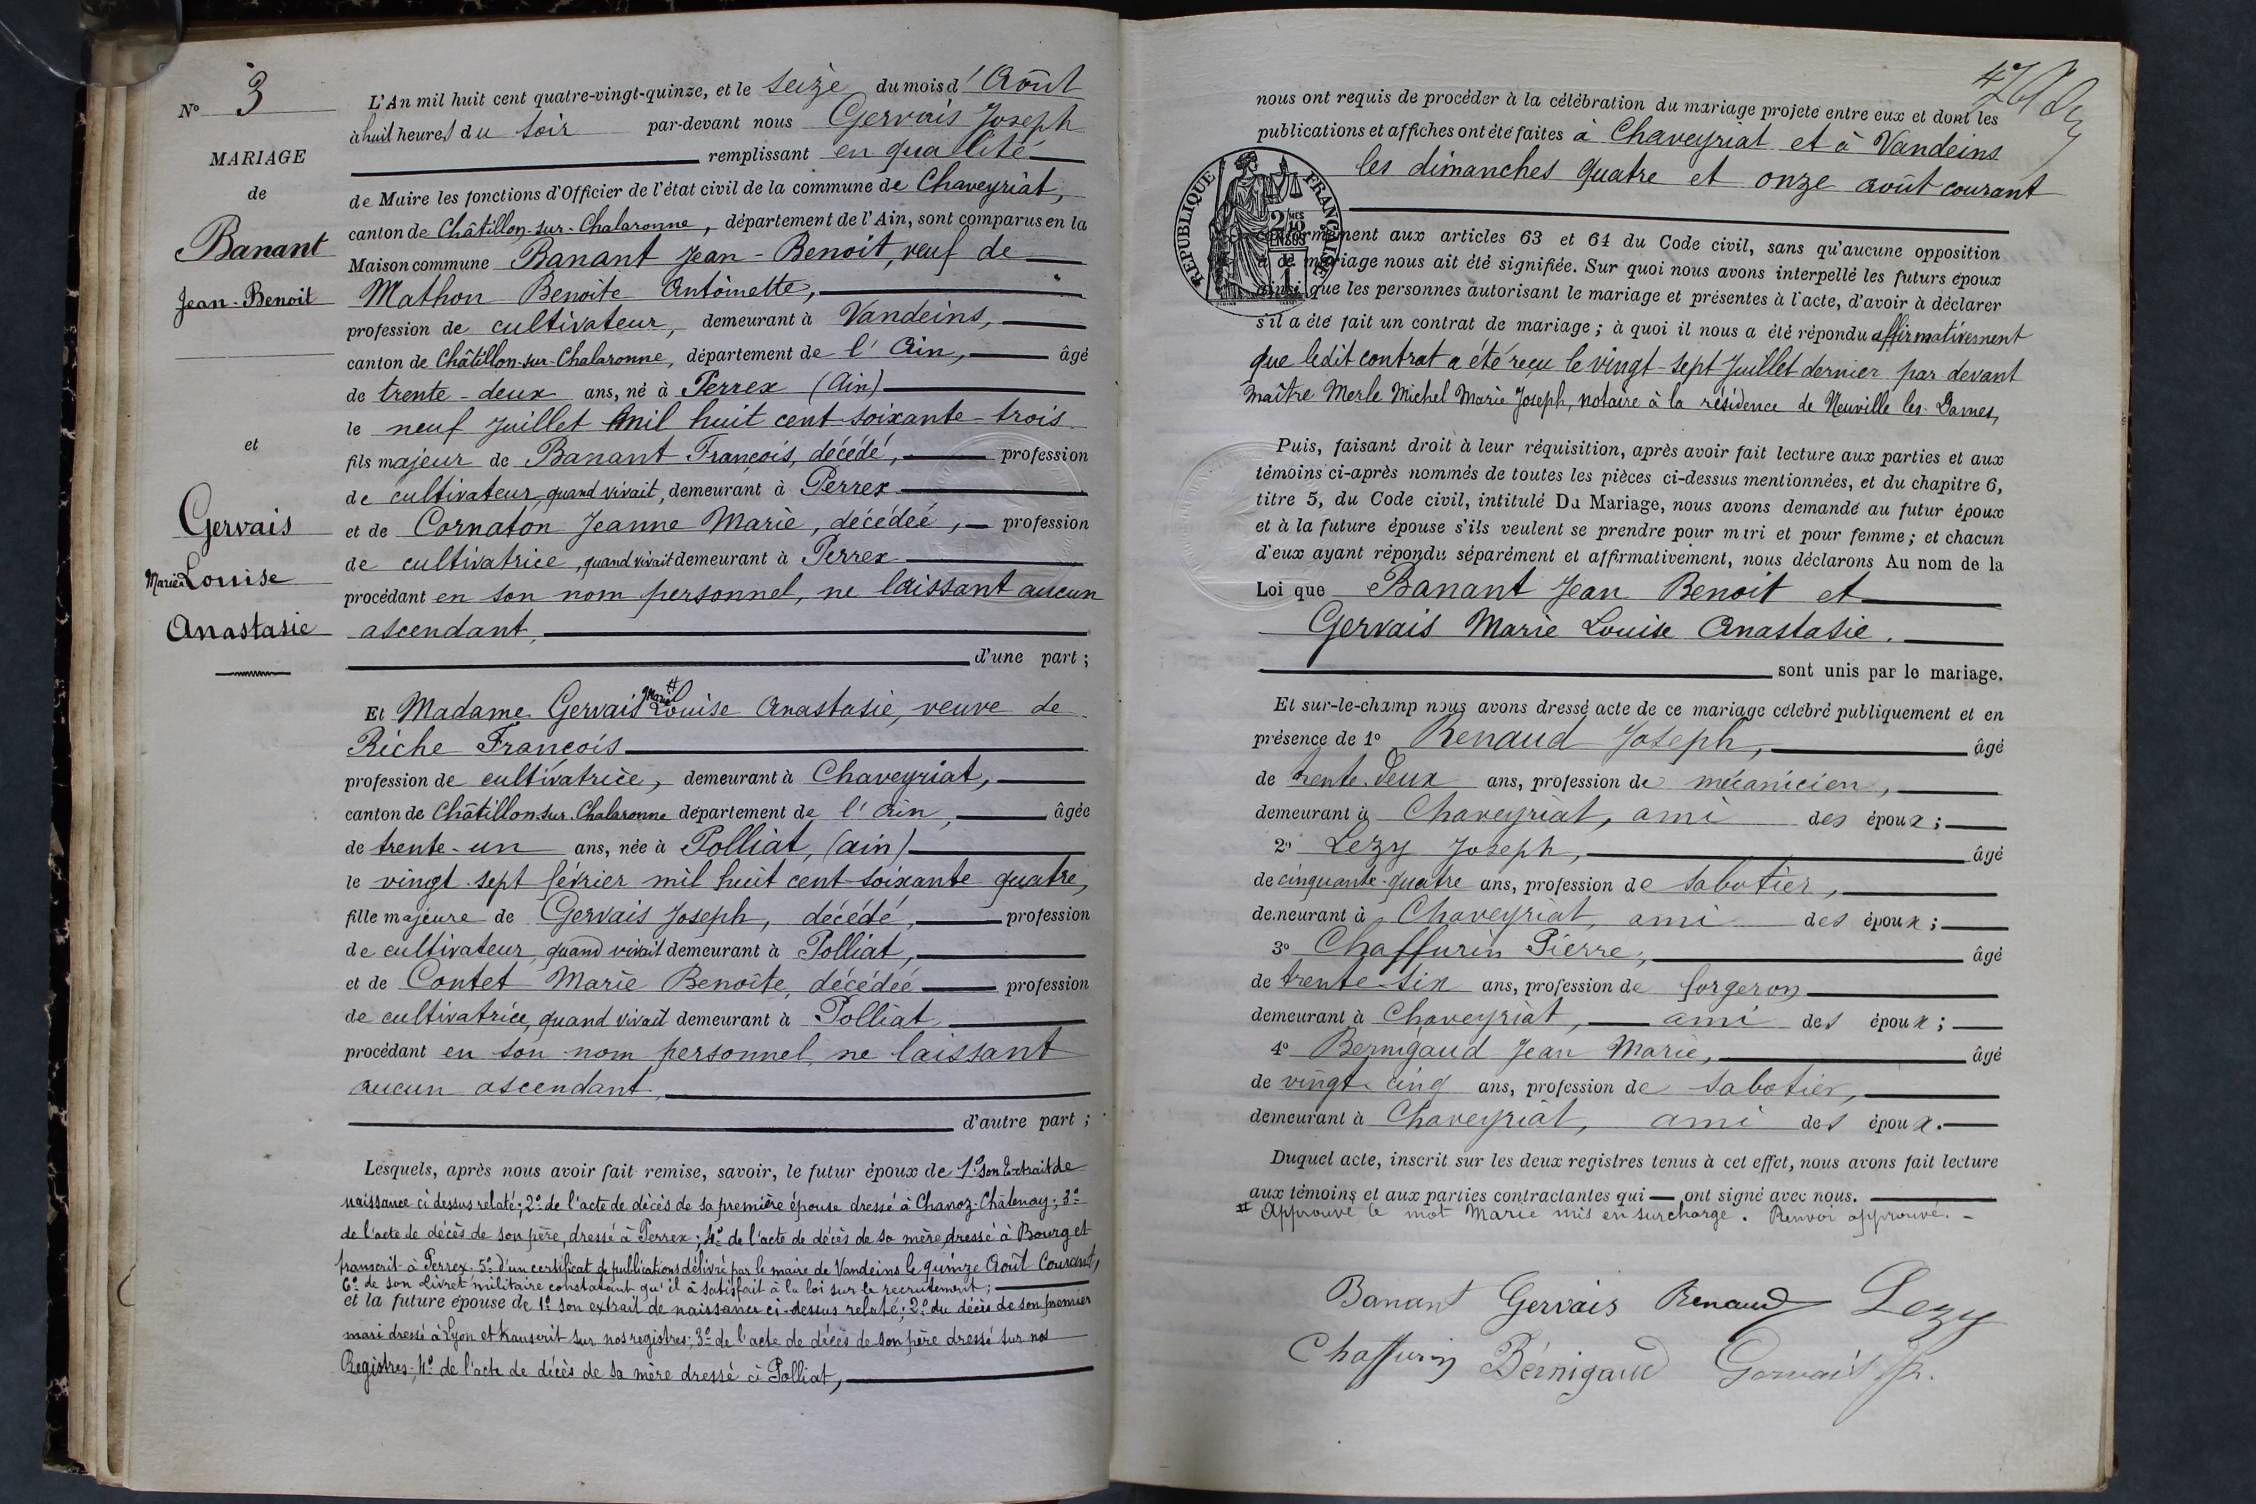 N° 3
MARIAGE
de
Banant
Jean-Benoit
et
Gervais
Marie Louise
Anastasie
L'An mil huit cent quatre-vingt-quinze, et le seize du mois d'Août
à huit heures du soir par-devant nous Gervais Joseph
remplissant en qualité
de Maire les fonctions d'Officier de l'état civil de la commune de Chaveyriat,
canton de Châtillon-sur-Chalaronne, département de l'Ain, sont comparus en la
Maison commune Banant Jean-Benoit, veuf de
Mathon Benoite Antoinette,
profession de cultivateur, demeurant à Vandeins,
canton de Châtillon-sur-Chalaronne, département de l'Ain, âgé
de trente-deux ans, né à Perrex (Ain)
le neuf Juillet mil huit cent soixante-trois
fils majeur de Banant François, décédé, profession
de cultivateur, quand vivait, demeurant à Perrex
et de Cornaton Jeanne Marie, décédée, profession
de cultivatrice, quand vivait demeurant à Perrex
procédant en son nom personnel, ne laissant aucun
ascendant,
d'une part ;
Et Madame Gervais # Marie Louise Anastasie, veuve de
Riche François
profession de cultivatrice, demeurant à Chaveyriat,
canton de Châtillon-sur-Chalaronne département de l'Ain, âgée
de trente-un ans, née à Polliat, (ain)
le vingt-sept février mil huit cent soixante quatre,
fille majeure de Gervais Joseph, décédé, profession
de cultivateur, quand vivait demeurant à Polliat,
et de Contet Marie Benoîte, décédée profession
de cultivatrice, quand vivait demeurant à Polliat
procédant en son nom personnel, ne laissant
aucun ascendant,
d'autre part ;
Lesquels, après nous avoir fait remise, savoir, le futur époux de 1° son Extrait de
naissance ci dessus relaté; 2° de l'acte de décès de sa première épouse dressé à Chanoz-Châtenay; 3°
de l'acte de décès de son père, dressé à Perrex; 4° de l'acte de décès de sa mère, dressé à Bourg et
transcrit à Perrex. 5° d'un certificat de publications délivré par le maire de Vandeins le quinze Août Courant,
6° de son Livret militaire constatant qu'il à satisfait à la loi sur le recrutement;
et la future épouse de 1° son extrait de naissance ci-dessus relaté; 2° du décès de son premier
mari dressé à Lyon et transcrit sur nos registres; 3° de l'acte de décès de son père dressé sur nos
Registres; 4° de l'acte de décès de sa mère dressé à Polliat,
47
nous ont requis de procéder à la célébration du mariage projeté entre eux et dont les
publications et affiches ont été faites à Chaveyriat et à Vandeins
les dimanches quatre et onze août courant
RÉPUBLIQUE FRANÇAISE
2/10 MES
EN SUS
conformément aux articles 63 et 64 du Code civil, sans qu'aucune opposition
à ce mariage nous ait été signifiée. Sur quoi nous avons interpellé les futurs époux
ainsi que les personnes autorisant le mariage et présentes à l'acte, d'avoir à déclarer
s'il a été fait un contrat de mariage ; à quoi il nous a été répondu affirmativement
que ledit contrat a été reçu le vingt-sept Juillet dernier par devant
maître Merle Michel Marie Joseph, notaire à la résidence de Neuville les Dames,
Puis, faisant droit à leur réquisition, après avoir fait lecture aux parties et aux
témoins ci-après nommés de toutes les pièces ci-dessus mentionnées, et du chapitre 6,
titre 5, du Code civil, intitulé Du Mariage, nous avons demandé au futur époux
et à la future épouse s'ils veulent se prendre pour mari et pour femme ; et chacun
d'eux ayant répondu séparément et affirmativement, nous déclarons Au nom de la
Loi que Banant Jean Benoit et
Gervais Marie Louise Anastasie.
sont unis par le mariage.
Et sur-le-champ nous avons dressé acte de ce mariage célébré publiquement et en
présence de 1° Renaud Joseph, âgé
de trente-deux ans, profession de mécanicien,
demeurant à Chaveyriat, ami des époux ;
2° Lézy Joseph, âgé
de cinquante-quatre ans, profession de sabotier,
demeurant à Chaveyriat, ami des époux ;
3° Chaffurin Pierre, âgé
de trente-six ans, profession de forgeron
demeurant à Chaveyriat, ami des époux ;
4° Bernigaud Jean Marie, âgé
de vingt-cinq ans, profession de sabotier,
demeurant à Chaveyriat, ami des époux.
Duquel acte, inscrit sur les deux registres tenus à cet effet, nous avons fait lecture
aux témoins et aux parties contractantes qui ont signé avec nous.
# Approuvé le mot Marie mis en surcharge. Renvoi approuvé.
Banant Gervais Renaud Lezy
Chaffurin Bérnigaud Gervais Jh.